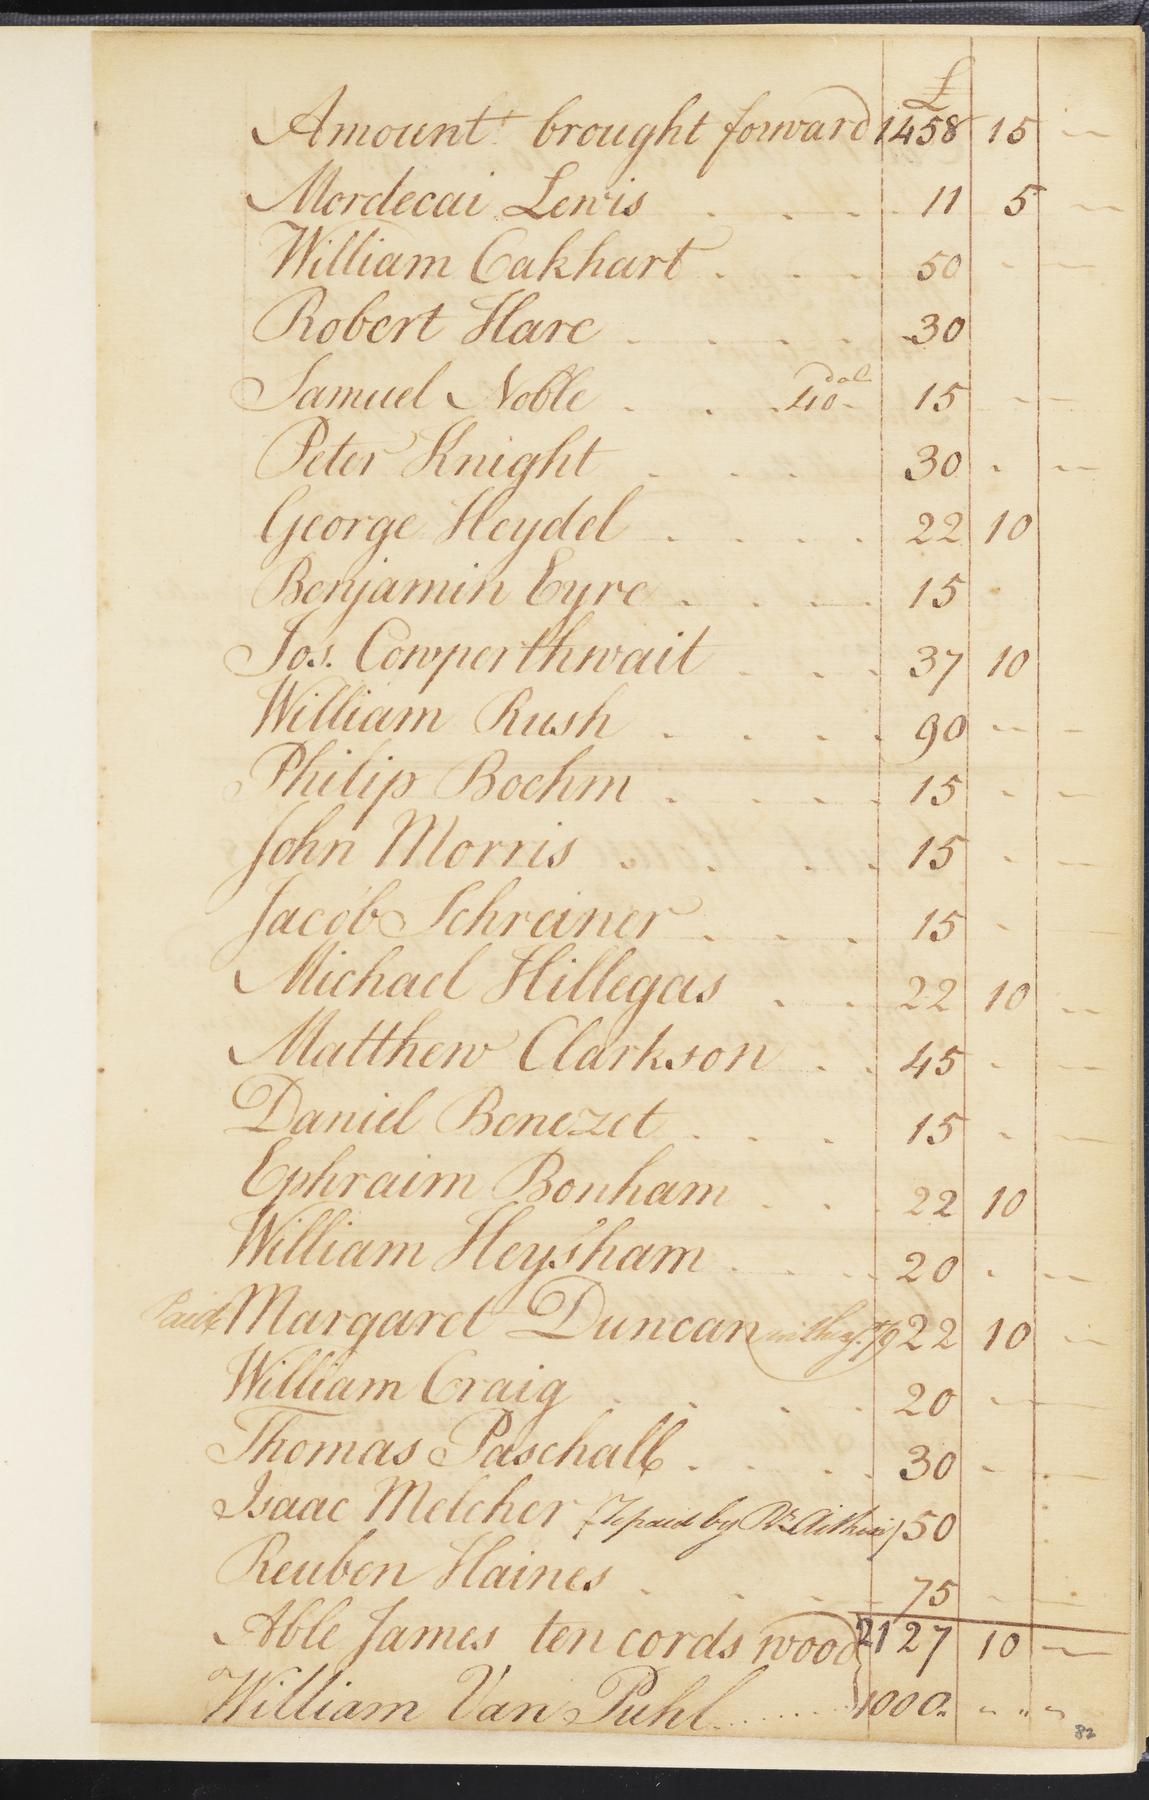 £
Amount brought forward 1458 15 --
Mordecai Lewis . . . 11 5 --
William Cakhart . . . 50 - --
Robert Hare . . . . 30
Samuel Noble . . . 40 dol. 15 -- --
Peter Knight . . . 30 - --
George Heydel . . . . 22 10
Benjamin Eyre . . . 15 -
Jos. Cowperthwait . . . 37 10
William Rush . . . . 90 -- -
Philip Boehm . . . . 15 - --
John Morris . . . . 15 - --
Jacob Schreiner . . . 15 -
Michael Hillegas . . 22 10 --
Matthew Clarkson . . 45 - --
Daniel Benezet . . . 15 - --
Ephraim Bonham . . 22 10
William Heysham . . . 20 - --
Paid Margaret Duncan 79 22 10 --
William Craig . . . . 20 - --
Thomas Paschall . . . . 30 - --
Isaac Melcher (To paid by Rt. Aitkin) 50
Reuben Haines . . . . 75 - --
Able James ten cords wood 2127 10 --
William Van Puhl ...... 1000 " " "
82